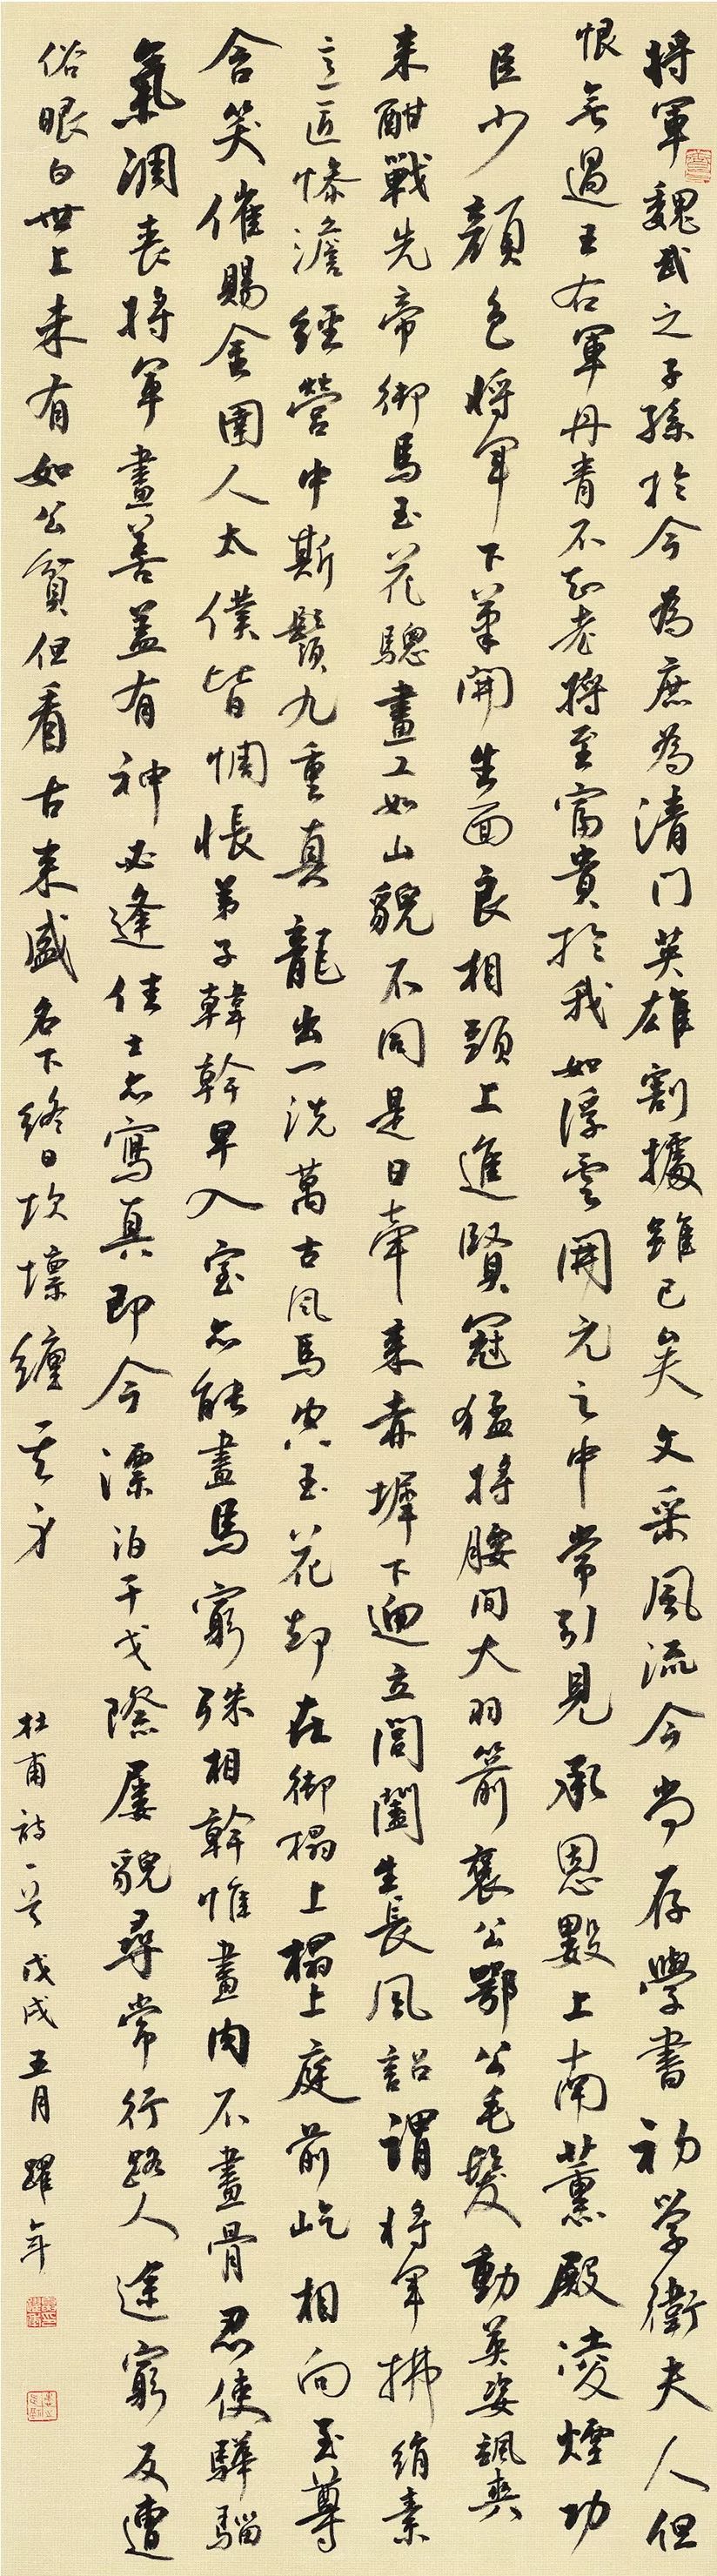 將軍魏武之子孫於今為庶為清門英雄割據雖已矣文采風流今尚存學書初學衛夫人但
恨無過王右軍丹青不知老將至富貴於我如浮雲開元之中常引見承恩數上南薰殿淩煙功
臣少顏色將軍下筆開生面良相頭上進賢冠猛將腰間大羽箭褒公鄂公毛髮動英姿颯爽
來酣戰先帝御馬玉花驄畫工如山貌不同是日牽來赤墀下迥立閶闔生長風詔謂將軍拂絹素
意匠慘澹經營中斯鬚九重真龍出一洗萬古凡馬空玉花卻在御榻上榻上庭前屹相向至尊
含笑催賜金圉人太僕皆惆悵弟子韓幹早入室亦能畫馬窮殊相幹惟畫肉不畫骨忍使驊騮
氣凋喪將軍畫善蓋有神必逢佳士亦寫真即今漂泊干戈際屢貌尋常行路人途窮反遭
俗眼白世上未有如公貧但看古來盛名下終日坎壈纏其身
杜甫詩一首戊戌五月躍年